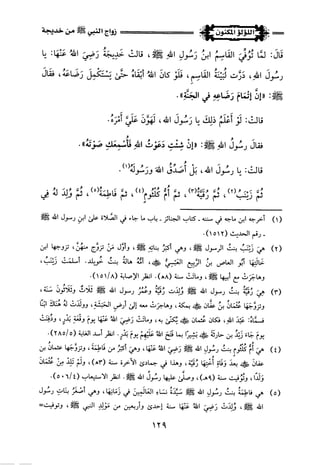 اللؤلؤ المكنون
زواج النبي ﷺ من خديجة
قَالَ: لَمَّا تُوُفِّيَ القَاسِمُ ابنُ رَسُولِ اللهِ ﷺ، قالتْ خَدِيجَةُ رَضِيَ اللهُ عَنْهَا: يا
رسُولَ اللهِ، دَرَّت لُبَيْنَةُ القَاسِمِ، فَلَوْ كانَ اللهُ أبْقَاهُ حتَّى يَسْتَكْمِلَ رَضَاعَهُ، فقَالَ
ﷺ: «إنَّ إتْمَامَ رَضَاعِهِ في الجَنَّةِ».
قالتْ: لَوْ أعْلَمُ ذلِكَ يا رَسُولَ اللهِ، لَهَوَّنَ عَلَيَّ أمْرَهُ.
فقالَ رسُولُ اللهِ ﷺ: «إنْ شِئْتِ دَعَوْتُ اللهَ فَأُسْمِعُكِ صَوْتَهُ».
قالتْ: يا رسُولَ اللهِ، بَلْ أُصَدِّقُ اللهَ ورَسُولَهُ(١).
ثُمَّ زَيْنَبُ(٢)، ثُمَّ رُقَيَّةُ(٣)، ثم أُمُّ كُلْثُومٍ(٤)، ثمَّ فَاطِمَةُ(٥)، ثُمَّ وُلِدَ لهُ فِي
(١) أخرجه ابن ماجه في سننه ـ كتاب الجنائز ـ باب ما جاء في الصلاة على ابن رسول الله ﷺ
ـ رقم الحديث (١٥١٢)
(٢) هِيَ زَيْنَبُ بنتُ الرسولِ ﷺ، وهي أكبَرُ بناتِهِ ﷺ، وأوَّلُ مَنْ تزوَّجَ منهُنَّ، تزوجها ابن
خَالتِهَا أبو العاص بنُ الرَّبيع العَبْسِيُّ، أمُّهُ هالةُ بنتُ خُويلد، أسلمَتْ زَيْنَبُ،
وهاجَرَتْ مع أبيها ﷺ، وماتت سنة (٨هـ). انظر الإصابة (١٥١/٨)
(٣) هِيَ رُقَيَّةُ بنت رسولِ الله ﷺ وُلِدَت رُقَيَّةُ وعُمُرُ رسولِ الله ﷺ ثَلاثٌ وثَلاثُونَ سَنَة،
وتزوَّجها عُثمانُ بنُ عَفَّان بمكة، وهاجَرَتْ معه إلى أرضِ الحَبَشَةِ، وولَدَتْ لهُ هُنَاكَ ابْنًا
فسمَّاهُ: عَبْدَ الله، فكان عُثمان يُكْنَى به، وماتَتْ رَضِيَ اللهُ عَنْهَا يومَ وَقْعَةِ بَدْرٍ، ودُفِنَتْ
يومَ جَاءَ زَيْدُ بن حارثَةَ بَشِيرًا بما فَتَحَ اللهُ عَلَيْهِمْ يومَ بَدْرٍ. انظر أسد الغابة (٢٨٥/٥)
(٤) هيَ أُمُّ كُلْثُوم بنتُ رسُولِ الله ﷺ رَضِيَ اللهُ عَنْهَا، وهي أكبرُ من فَاطِمَةَ، وتزوَّجها عثمانُ بن
عفانَ بعدَ وَفَاةِ أُخْتِهَا رُقَيَّةَ، وهذا في جمادى الآخرة سنة (٣هـ)، ولَمْ تَلِدْ مِنْ عُثمَانَ
وَلَدًا، وتُوُفيت سنة (٩هـ)، وصلَّى عليها رسُولُ الله ﷺ. انظر الاستيعاب (٥٠٦/٤)
(٥) هي فَاطِمَةُ بنتُ رسولِ اللهِ ﷺ سَيِّدَةُ نساءِ العَالَمِينَ في زَمَانِهَا، وهي أصْغَرُ بناتِ رسولِ
الله ﷺ، وُلِدَتْ رَضِيَ اللهُ عَنْهَا سنة إحدى وأربعين من مَوْلِدِ النبي ﷺ، وتوفيت=
١٢٩